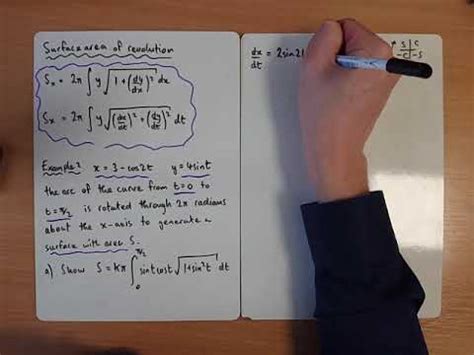 Surface area of revolution
Sₓ = 2π ∫ y √(1 + (dy/dx)²) dx
Sₓ = 2π ∫ y √((dx/dt)² + (dy/dt)²) dt
Example 2 x = 3 - cos2t y = 4sint
the arc of the curve from t = 0 to
t = π/2 is rotated through 2π radians
about the x-axis to generate a
surface with area S.
a) Show S = kπ ∫₀^(π/2) sint cost √(1+sin²t) dt
dx/dt = 2sin2t
S C
-C -S